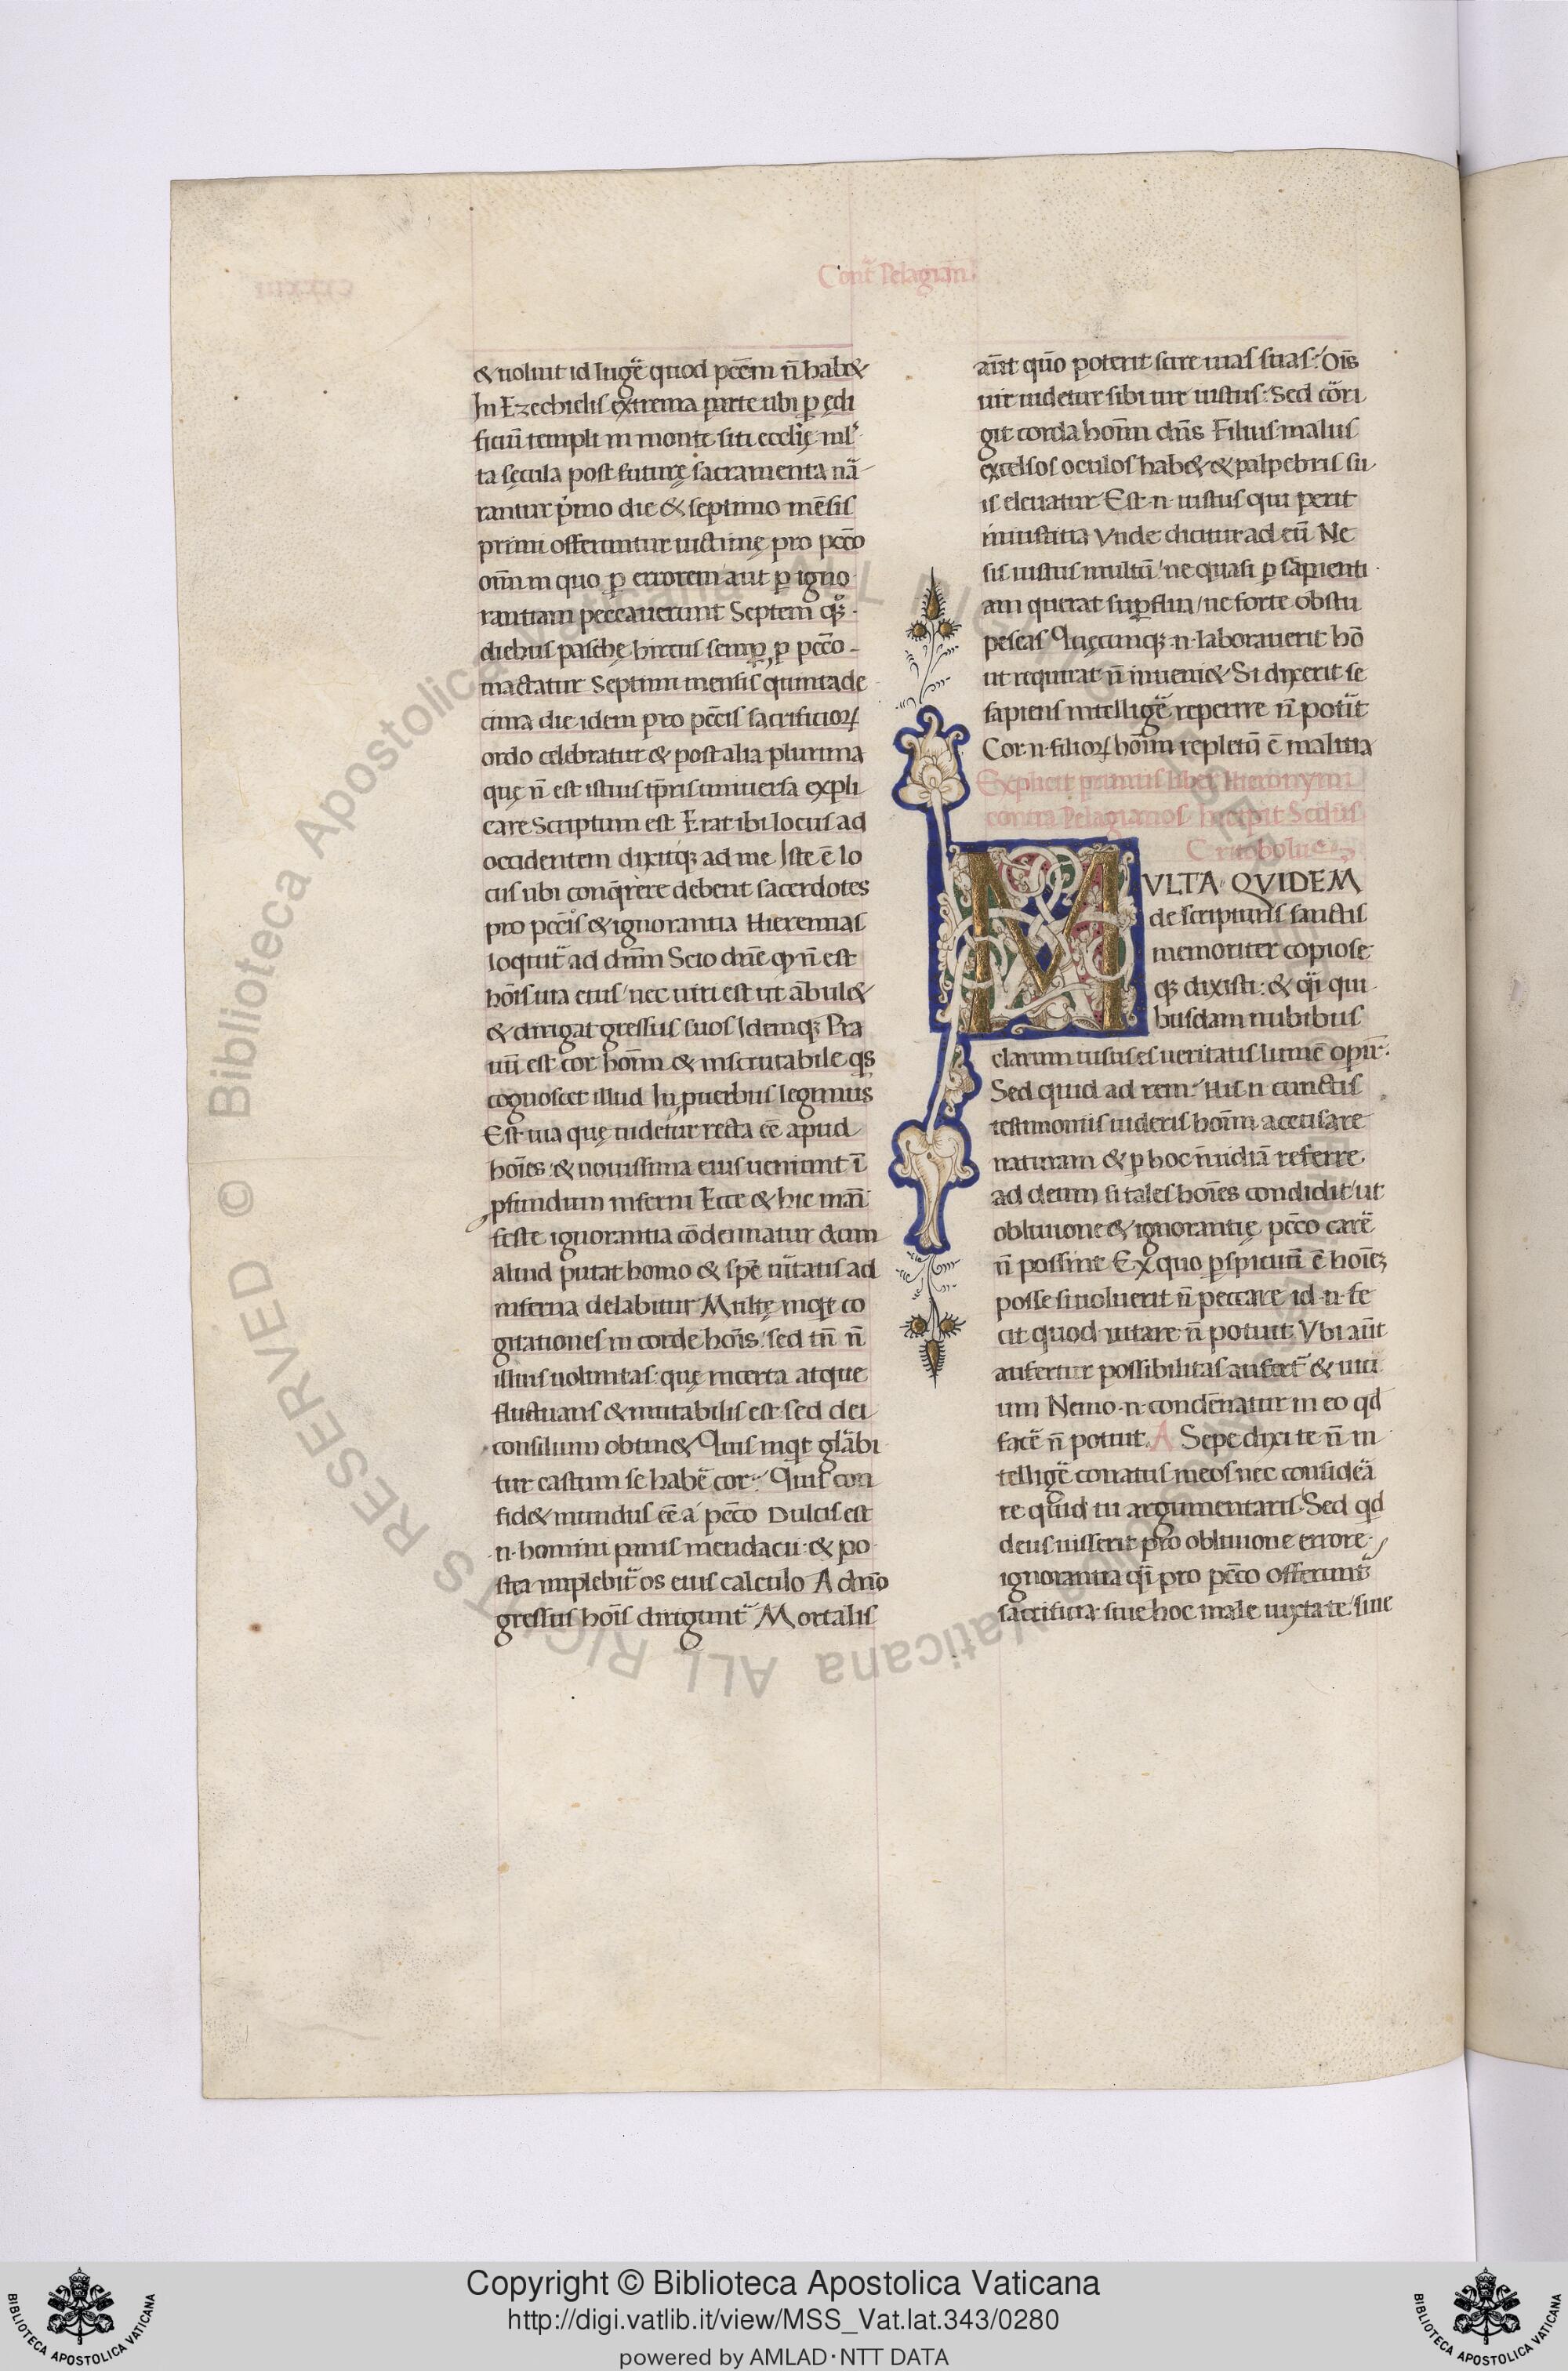 Cont̄ Pelagian̄
& uoluit id lugē quod pccm̄ n̄ hab&
In Ezechielis extrema parte ubi p̱ ędi
ficiū templi in monte siti ecclīę ml̄
ta sęcula post futurę sacramenta nā
rantur pͥmo die & septimo mēsis
primi offeruntur uictimę pro pccō
om̄ in quo p̱ errorem aut p̱ igno
rantiam peccauerunt Septem qꝫ
diebus paschę hircus semp̱ p̱ pccō
mactatur Septimi mensis quintade
cima die idem pro pccis sacrificioꝝ
ordo celebratur & post alia plurima
quę n̄ est istius tp̄ris uniuersa expli
care Scriptum est Erat ibi locus ad
occidentem dixitqꝫ ad me Iste ē lo
cus ubi conqͥrere debent sacerdotes
pro pccis & ignorantia Hieremias
loquit̄ ad dnm̄ Scio dnē qꝫ n̄ est
hoīs uia eius / nec uiri est ut ābul&
& dirigat gressus suos Idemqꝫ Pra
uū est cor hoīm & inscrutabile qͥs
cognoscet illud In puerbiis legimus
Est uia quę uidetur recta eē apud
hoīes & nouissima eius ueniunt ī
pfundum inferni Ecce & hic man̄
feste ignorantia cōdemnatur dum
aliud putat homo & spē uītatis ad
inferna delabitur Multę inqͥt co
gitationes in corde hoīs: sed tn̄ n̄
illius uoluntas: quę incerta atque
fluctuans & mutabilis est: sed dei
consilium obtin& Quis inqͥt glābi
tur castum se habē cor: Quis con
fid& mundus eē a pccō Dulcis est
.n. homini panis mendacii: & po
stea implebit̄ os eius calculo A dnō
gressus hoīs dirigunt̄ Mortalis
aūt quō poterit scire uias suas: Oīs
uir uidetur sibi uir iustus: Sed cōri
git corda hoīm dn̄s Filius malus
excelsos oculos hab& & palpebris su
is eleuatur Est .n. iustus qui perit
in iustitia Vnde dicitur ad eū Ne
sis iustus multū / ne quasi p̱ sapienti
am querat sup̱flua / ne forte obstu
pescas Quęcunqꝫ .n. laborauerit hō
ut requirat n̄ inueni& Si dixerit se
sapiens intelligē reperire n̄ potīt
Cor .n. filioꝝ hoīm repletū ē malitia
Explicit primus liber Hieronymi
contra Pelagianos Incipit Scdūs
Critobolus
MVLTA QVIDEM
de scripturis sanctis
memoriter copiose
qꝫ dixisti: & qͣi qui
busdam nubibus
clarum uisus es ueritatis lumē opir̄
Sed quid ad rem: His .n. cunctis
testimoniis uideris hoīm accusare
naturam & p̱ hoc inuidiā referre
ad deum si tales hoīes condidit / ut
obliuione & ignorantię pccō carē
n̄ possint Ex quo p̱spicuū ē hoīeꝫ
posse si uoluerit n̄ peccare id .n. fe
cit quod uitare n̄ potuit Vbi aūt
aufertur possibilitas aufert̄ & uici
um Nemo .n. condēnatur in eo qd̄
facē n̄ potuit. A Sepe dixi te n̄ in
telligē conatus meos nec considēa
re quid tu argumentaris Sed qd̄
deus iusserit pro obliuione errore
ignorantia qͣi pro pccō offerunt̄
sacrificia siue hoc male iuxta te / siue
© Biblioteca Apostolica Vaticana ALL RIGHTS RESERVED
Copyright © Biblioteca Apostolica Vaticana
http://digi.vatlib.it/view/MSS_Vat.lat.343/0280
powered by AMLAD·NTT DATA
BIBLIOTECA APOSTOLICA VATICANA
BIBLIOTECA APOSTOLICA VATICANA